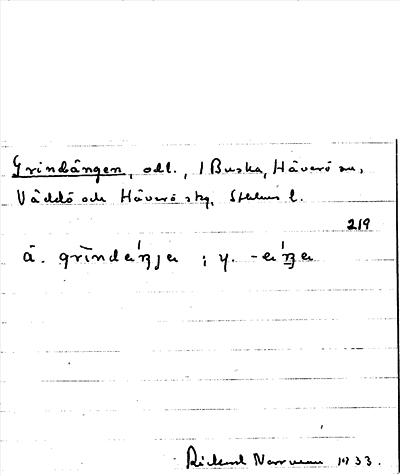 Grindängen, odl., 1 Buska, Häverö sn,
Väddö och Häverö skg, Sthlms l.
219
ä. grīndeŋ́jeɩ ; y. -eŋ́eɩ
Rickard Norrman 1933.